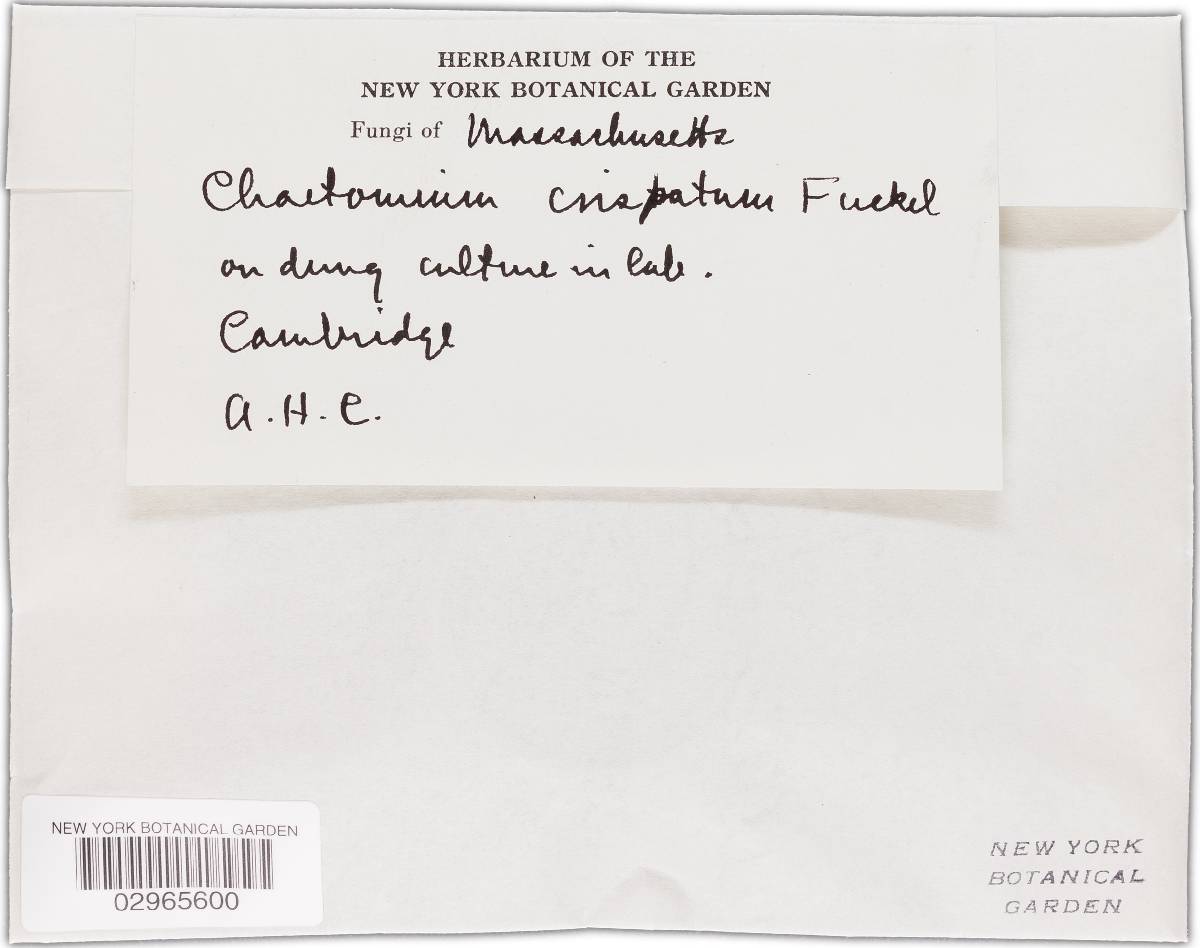 HERBARIUM OF THE
NEW YORK BOTANICAL GARDEN
Fungi of Massachusetts
Chaetomium crispatum Fuckel
on dung culture in lab.
Cambridge
A.H.C.
NEW YORK BOTANICAL GARDEN
02965600
NEW YORK
BOTANICAL
GARDEN